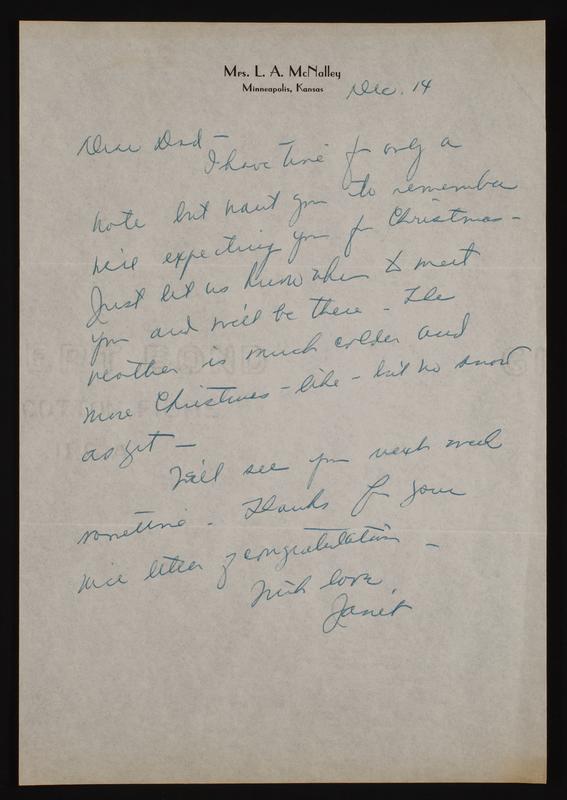 Mrs. L. A. McNalley
Minneapolis, Kansas
Dec. 14
Dear Dad —
I have time for only a
note but want you to remember
we're expecting you for Christmas —
Just let us know when to meet
you and we'll be there — The
weather is much colder and
more Christmas-like — but no snow
as yet —
We'll see you next week
sometime. Thanks for your
nice letter of congratulations —
With love,
Janet